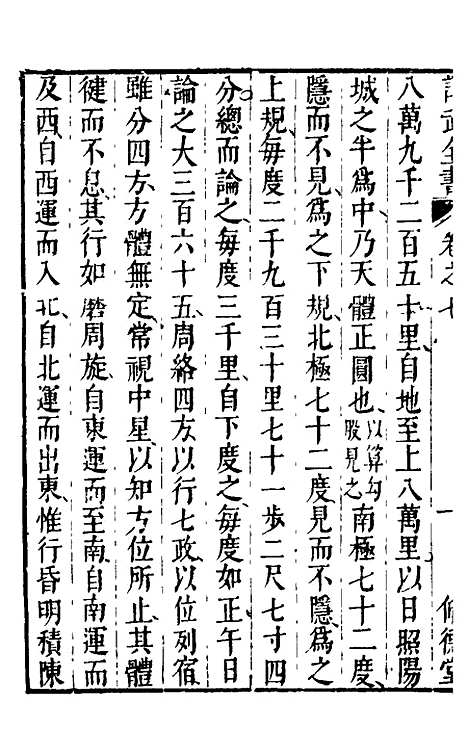 武全書 卷之七 一 脩德堂
八萬九千二百五十里自地至上八萬里以日照陽
城之半爲中乃天體正圓也以算勾股見之南極七十二度
隱而不見爲之下規北極七十二度見而不隱爲之
上規每度二千九百三十里七十一步二尺七寸四
分總而論之每度三千里自下度之每度如正午日
論之大三百六十五周絡四方以行七政以位列宿
雖分四方方體無定常視中星以知方位所止其體
健而不息其行如磨周旋自東運而至南自南運而
及西自西運而入北自北運而出東惟行昏明積陳